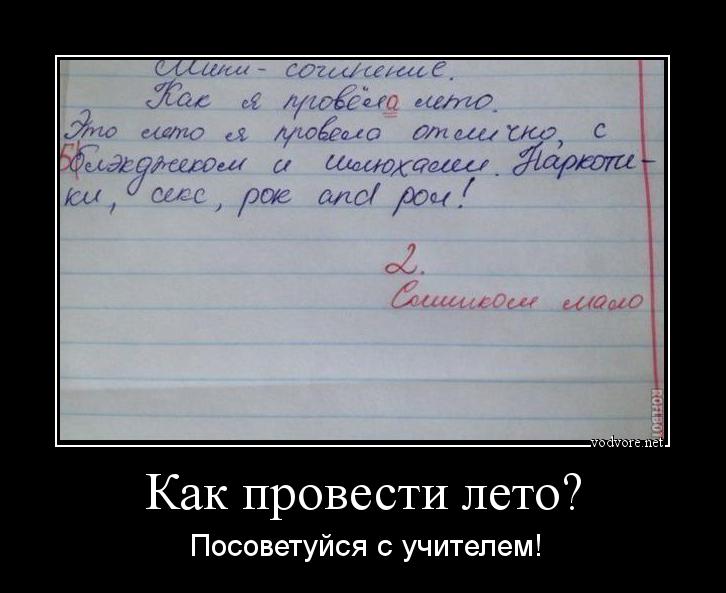 Мини-сочинение.
Как я провёла лето.
Это лето я провела отлично, с
блэкджеком и шлюхами. Наркоти-
ки, секс, рок and рол!
2.
Слишком мало
vodvore.net
Как провести лето?
Посоветуйся с учителем!